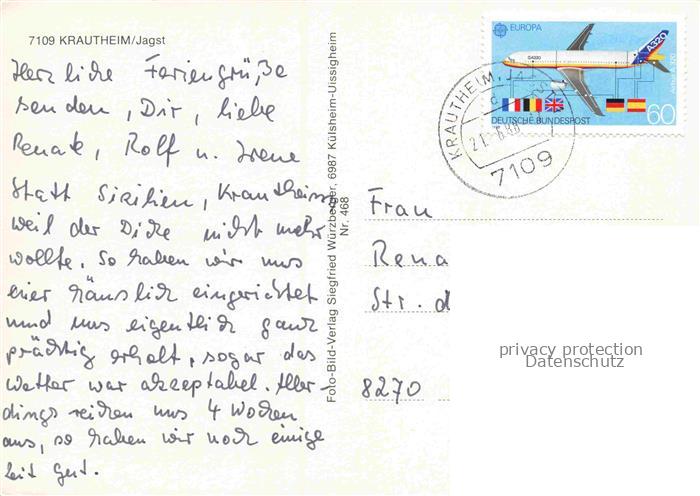 7109 KRAUTHEIM/Jagst
Herzliche Feriengrüße
senden, Dir, liebe
Renate, Rolf u. Irene
Statt Sizilien, Krautheim
weil der Dicke nicht mehr
wollte. So haben wir uns
hier häuslich eingerichtet
und uns eigentlich ganz
prächtig erholt, sogar das
Wetter war akzeptabel. Aller-
dings reichen uns 4 Wochen
aus, so haben wir noch einige
Zeit gut.
Foto-Bild-Verlag Siegfried Würzberger, 6987 Külsheim-Uissigheim
Nr. 468
EUROPA
A320
DEUTSCHE BUNDESPOST
60
KRAUTHEIM, J
7109
Frau
Rena
Str. d
8270
privacy protection
Datenschutz